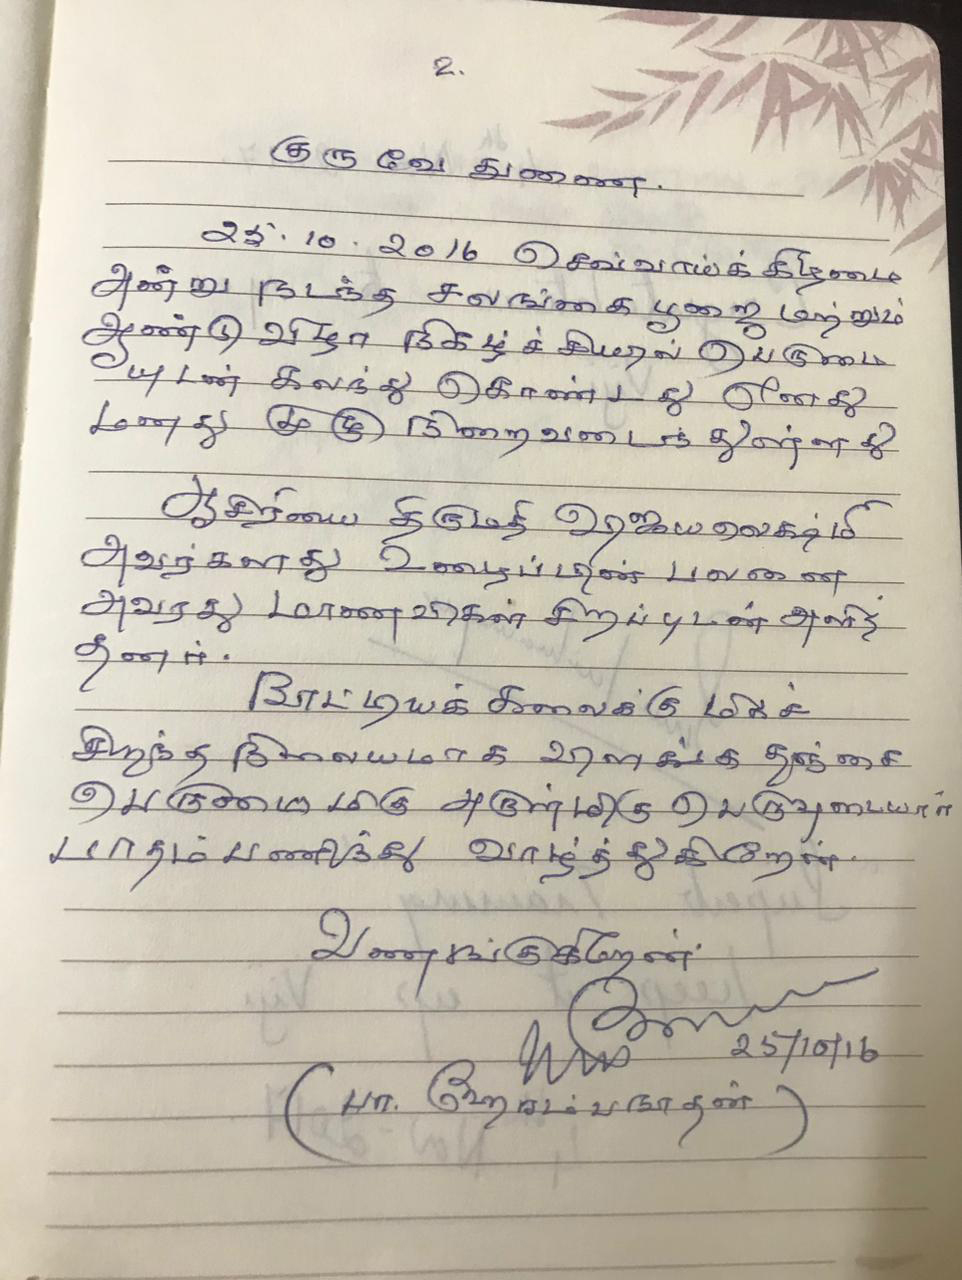 உ.
குருவே துணை.
25.10.2016 செவ்வாய்க் கிழமை
அன்று நடந்த சலங்கை பூஜை மற்றும்
ஆண்டு விழா நிகழ்ச்சியில் பெருமை
யுடன் கலந்து கொண்டது எனது
மனது முழு நிறைவடைந்துள்ளது
ஆசிரியை திருமதி விஜயலெக்ஷ்மி
அவர்களது உழைப்பின் பலனை
அவரது மாணவிகள் சிறப்புடன் அளித்
தனர்.
நாட்டியக் கலைக்கு மிகச்
சிறந்த நிலையமாக விளங்க தஞ்சை
பெருமைமிகு அருள்மிகு பெருவுடையார்
பாதம் பணிந்து வாழ்த்துகிறேன்.
வணங்குகிறேன்.
25/10/16
(பா. ஹேரம்பநாதன்)